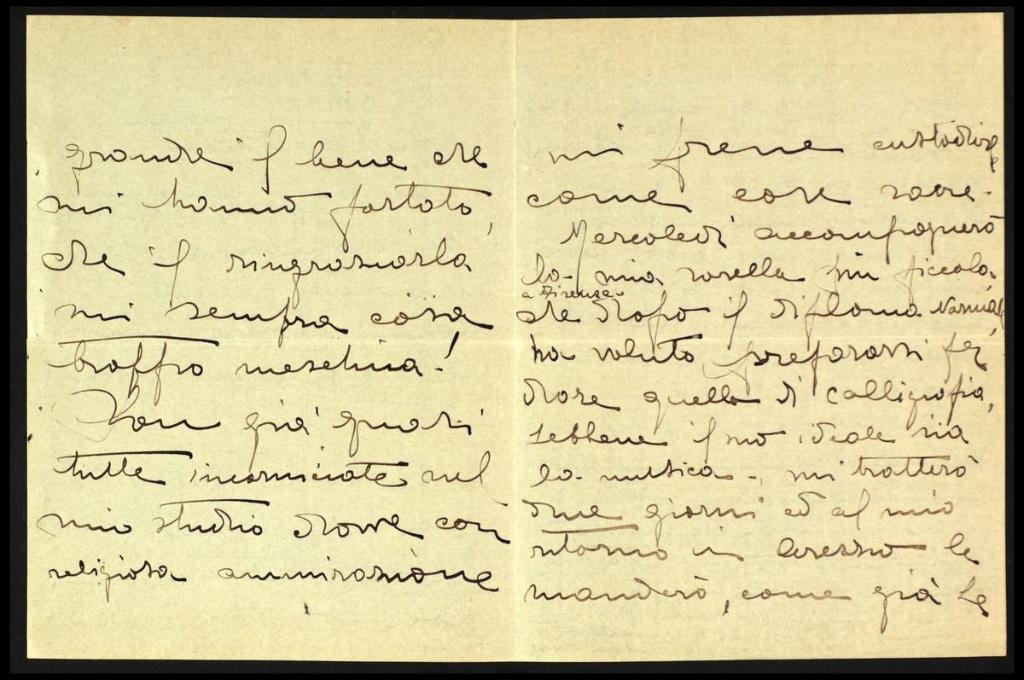 grande il bene che
mi hanno portato,
che il ringraziarla
mi sembra cosa
troppo meschina!
Son già quasi
tutte incorniciate nel
mio studio dove con
religiosa ammirazione
mi preme custodirle
come cose sacre.
Mercoledì accompagnerò
la mia sorella più piccola
a Firenze
che dopo il diploma Normale
ha voluto prepararsi per
dare quello di calligrafia,
sebbene il suo ideale sia
la musica -, mi tratterò
due giorni ed al mio
ritorno in Arezzo le
manderò, come già Le